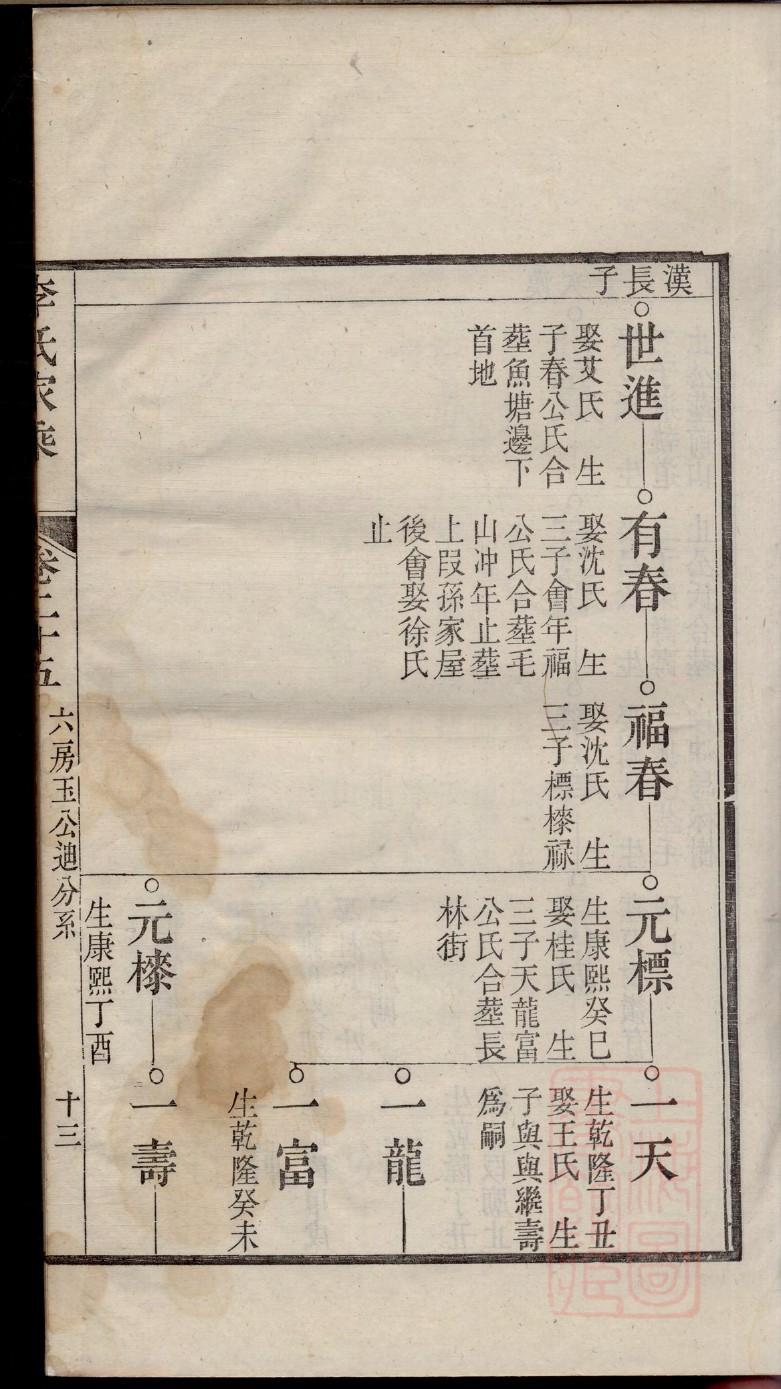 漢長子
世進
娶艾氏 生
子春公氏合
塟魚塘邊下
首地
有春
娶沈氏 生
三子會年福
公氏合塟毛
山冲年止塟
上叚孫家屋
後會娶徐氏
止
福春
娶沈氏 生
三子標樑祿
元標
生康熙癸巳
娶桂氏 生
三子天龍富
公氏合塟長
林街
元樑
生康熙丁酉
一天
生乾隆丁丑
娶王氏 生
子與與繼壽
爲嗣
一龍
一富
生乾隆癸未
一壽
李氏家乘
卷二十五
六房玉公迪分系
十三